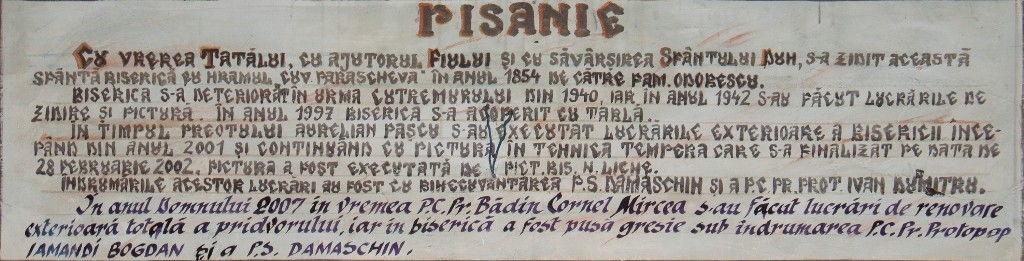 PISANIE
CU VREREA TATĂLUI, CU AJUTORUL FIULUI ȘI CU SĂVÂRȘIREA SFÂNTULUI DUH, S-A ZIDIT ACEASTĂ
SFÂNTĂ BISERICĂ CU HRAMUL „CUV. PARASCHEVA" ÎN ANUL 1854 DE CĂTRE FAM. ODOBESCU.
BISERICA S-A DETERIORAT ÎN URMA CUTREMURULUI DIN 1940, IAR ÎN ANUL 1942 S-AU FĂCUT LUCRĂRILE DE
ZIDIRE ȘI PICTURĂ. ÎN ANUL 1997 BISERICA S-A ACOPERIT CU TABLĂ..
ÎN TIMPUL PREOTULUI AURELIAN PASCU S-AU EXECUTAT LUCRĂRILE EXTERIOARE A BISERICII ÎNCE-
PÂND DIN ANUL 2001 ȘI CONTINUÂND CU PICTURA ÎN TEHNICA TEMPERA CARE S-A FINALIZAT PE DATA DE
28 FEBRUARIE 2002. PICTURA A FOST EXECUTATĂ DE PICT. BIS. N. LICHE.
ÎNDRUMĂRILE ACESTOR LUCRĂRI AU FOST CU BINECUVÂNTAREA P.S. DAMASCHIN ȘI A P.C. PR. PROT. IVAN DUMITRU.
In anul Domnului 2007 in vremea P.C. Pr. Bădin Cornel Mircea s-au făcut lucrări de renovare
exterioară totală a pridvorului, iar in biserică a fost pusă gresie sub indrumarea P.C. Pr. Protopop
IAMANDI BOGDAN și a P.S. DAMASCHIN.